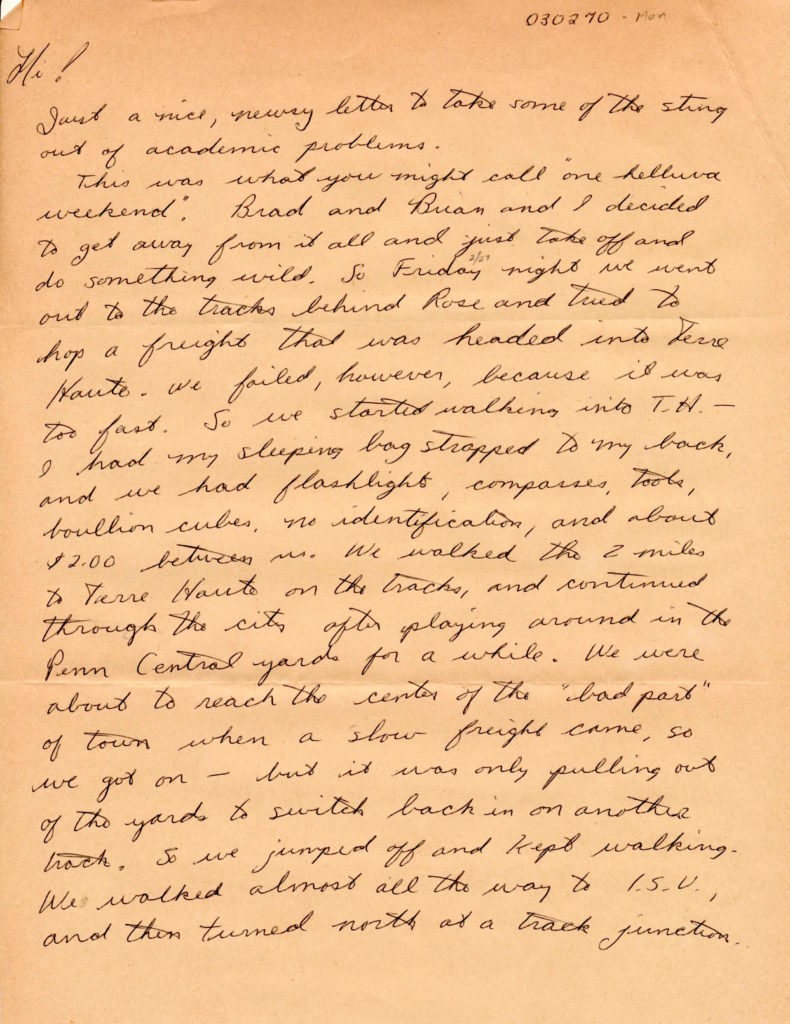 030270 - Mon
Hi!
Just a nice, newsy letter to take some of the sting
out of academic problems.
This was what you might call "one helluva
weekend". Brad and Brian and I decided
to get away from it all and just take off and
2/27
do something wild. So Friday night we went
out to the tracks behind Rose and tried to
hop a freight that was headed into Terre
Haute. We failed, however, because it was
too fast. So we started walking into T.H. —
I had my sleeping bag strapped to my back,
and we had flashlight, compasses, tools,
boullion cubes, no identification, and about
$2.00 between us. We walked the 2 miles
to Terre Haute on the tracks, and continued
through the city after playing around in the
Penn Central yards for a while. We were
about to reach the center of the "bad part"
of town when a slow freight came, so
we got on — but it was only pulling out
of the yards to switch back in on another
track. So we jumped off and kept walking.
We walked almost all the way to I.S.U.,
and then turned north at a track junction.